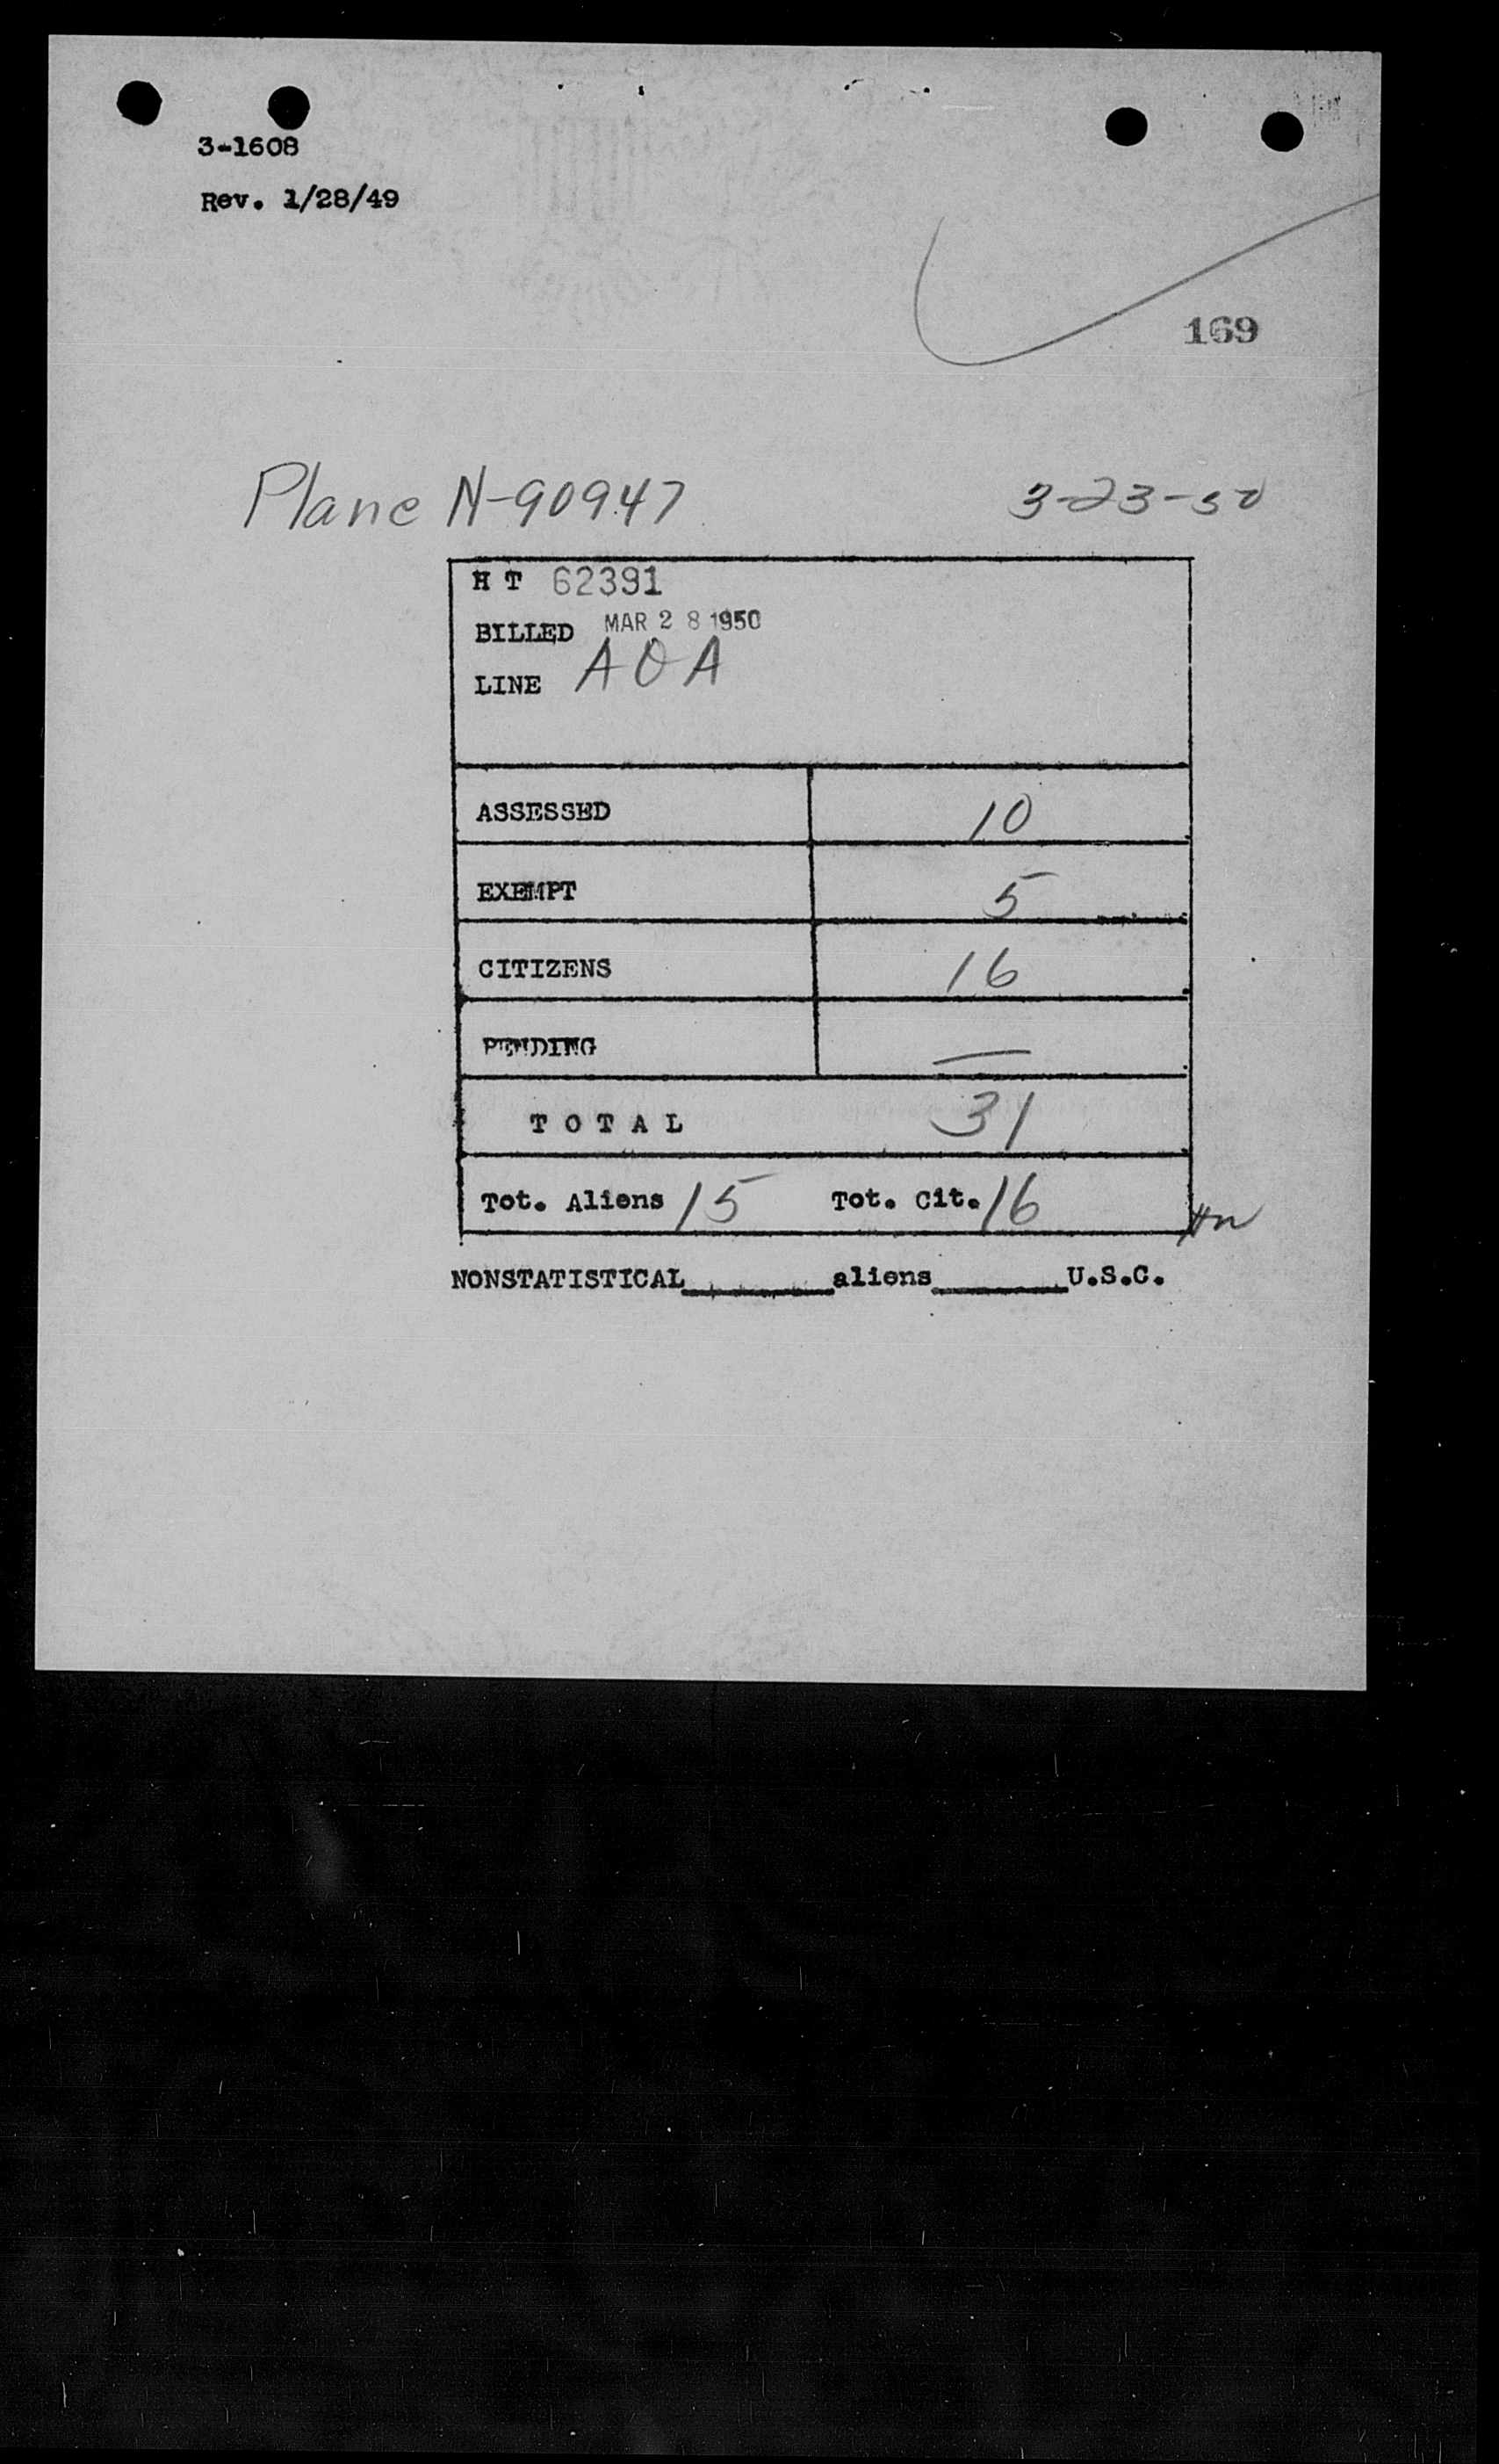 3-1608
Rev. 1/28/49
169
Plane N-90947 3-23-50
H T 62391
BILLED MAR 28 1950
LINE AOA
ASSESSED 10
EXEMPT 5
CITIZENS 16
PENDING —
T O T A L 31
Tot. Aliens 15 Tot. Cit. 16
NONSTATISTICAL________aliens________U.S.C.